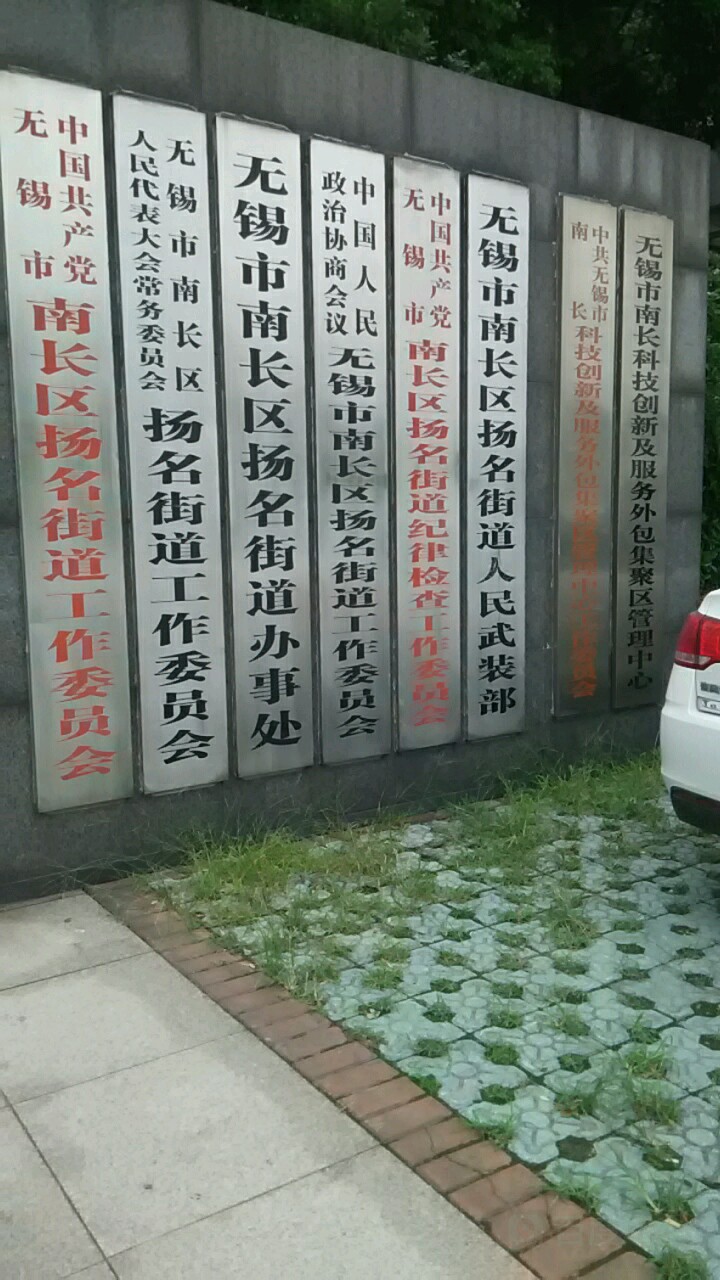 中国共产党
无锡市
南长区扬名街道工作委员会
无锡市南长区
人民代表大会常务委员会
扬名街道工作委员会
无锡市南长区扬名街道办事处
中国人民
政治协商会议
无锡市南长区扬名街道工作委员会
中国共产党
无锡市
南长区扬名街道纪律检查工作委员会
无锡市南长区扬名街道人民武装部
中共无锡市
南长
科技创新及服务外包集聚区管理中心工作委员会
无锡市南长科技创新及服务外包集聚区管理中心